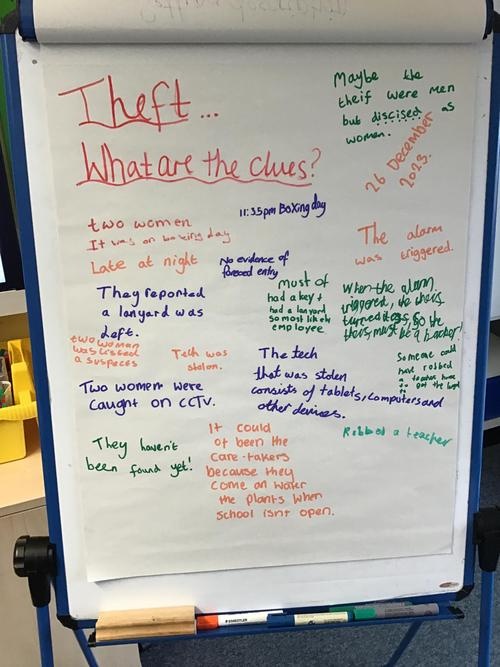 Theft...
What are the clues?
Maybe the
theif were men
but discised as
women.
26 December
2023.
two women
It was on boxing day
11:35pm Boxing day
Late at night
No evidence of
foreced entry
The alarm
was triggered.
They reported
a lanyard was
left.
most of
had a key +
had a lanyard
so most likely
employee
When the alarm
triggered, the theifs
turned it
must be a teacher!
two women
was
a suspects
Tech was
stolen.
The tech
that was stolen
consists of tablets, computers and
other devices.
Someone could
have robbed
a teacher
to get the
Two women were
caught on CCTV.
Robbed a teacher
They haven't
been found yet!
It could
of been the
care-takers
because they
come an water
the plants when
school isnt open.
STAEDTLER